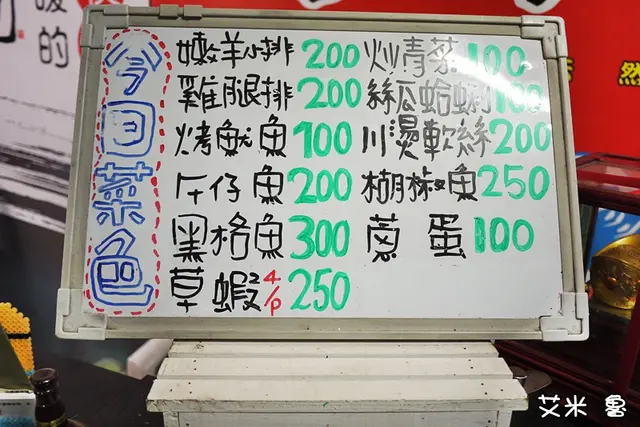 今日菜色
嫩羊小排 200
雞腿排 200
烤魷魚 100
午仔魚 200
黑格魚 300
草蝦 4/p 250
炒青菜 100
絲瓜蛤蜊 100
川燙軟絲 200
胡椒魚 250
蔥蛋 100
暖的
然
艾米 魯